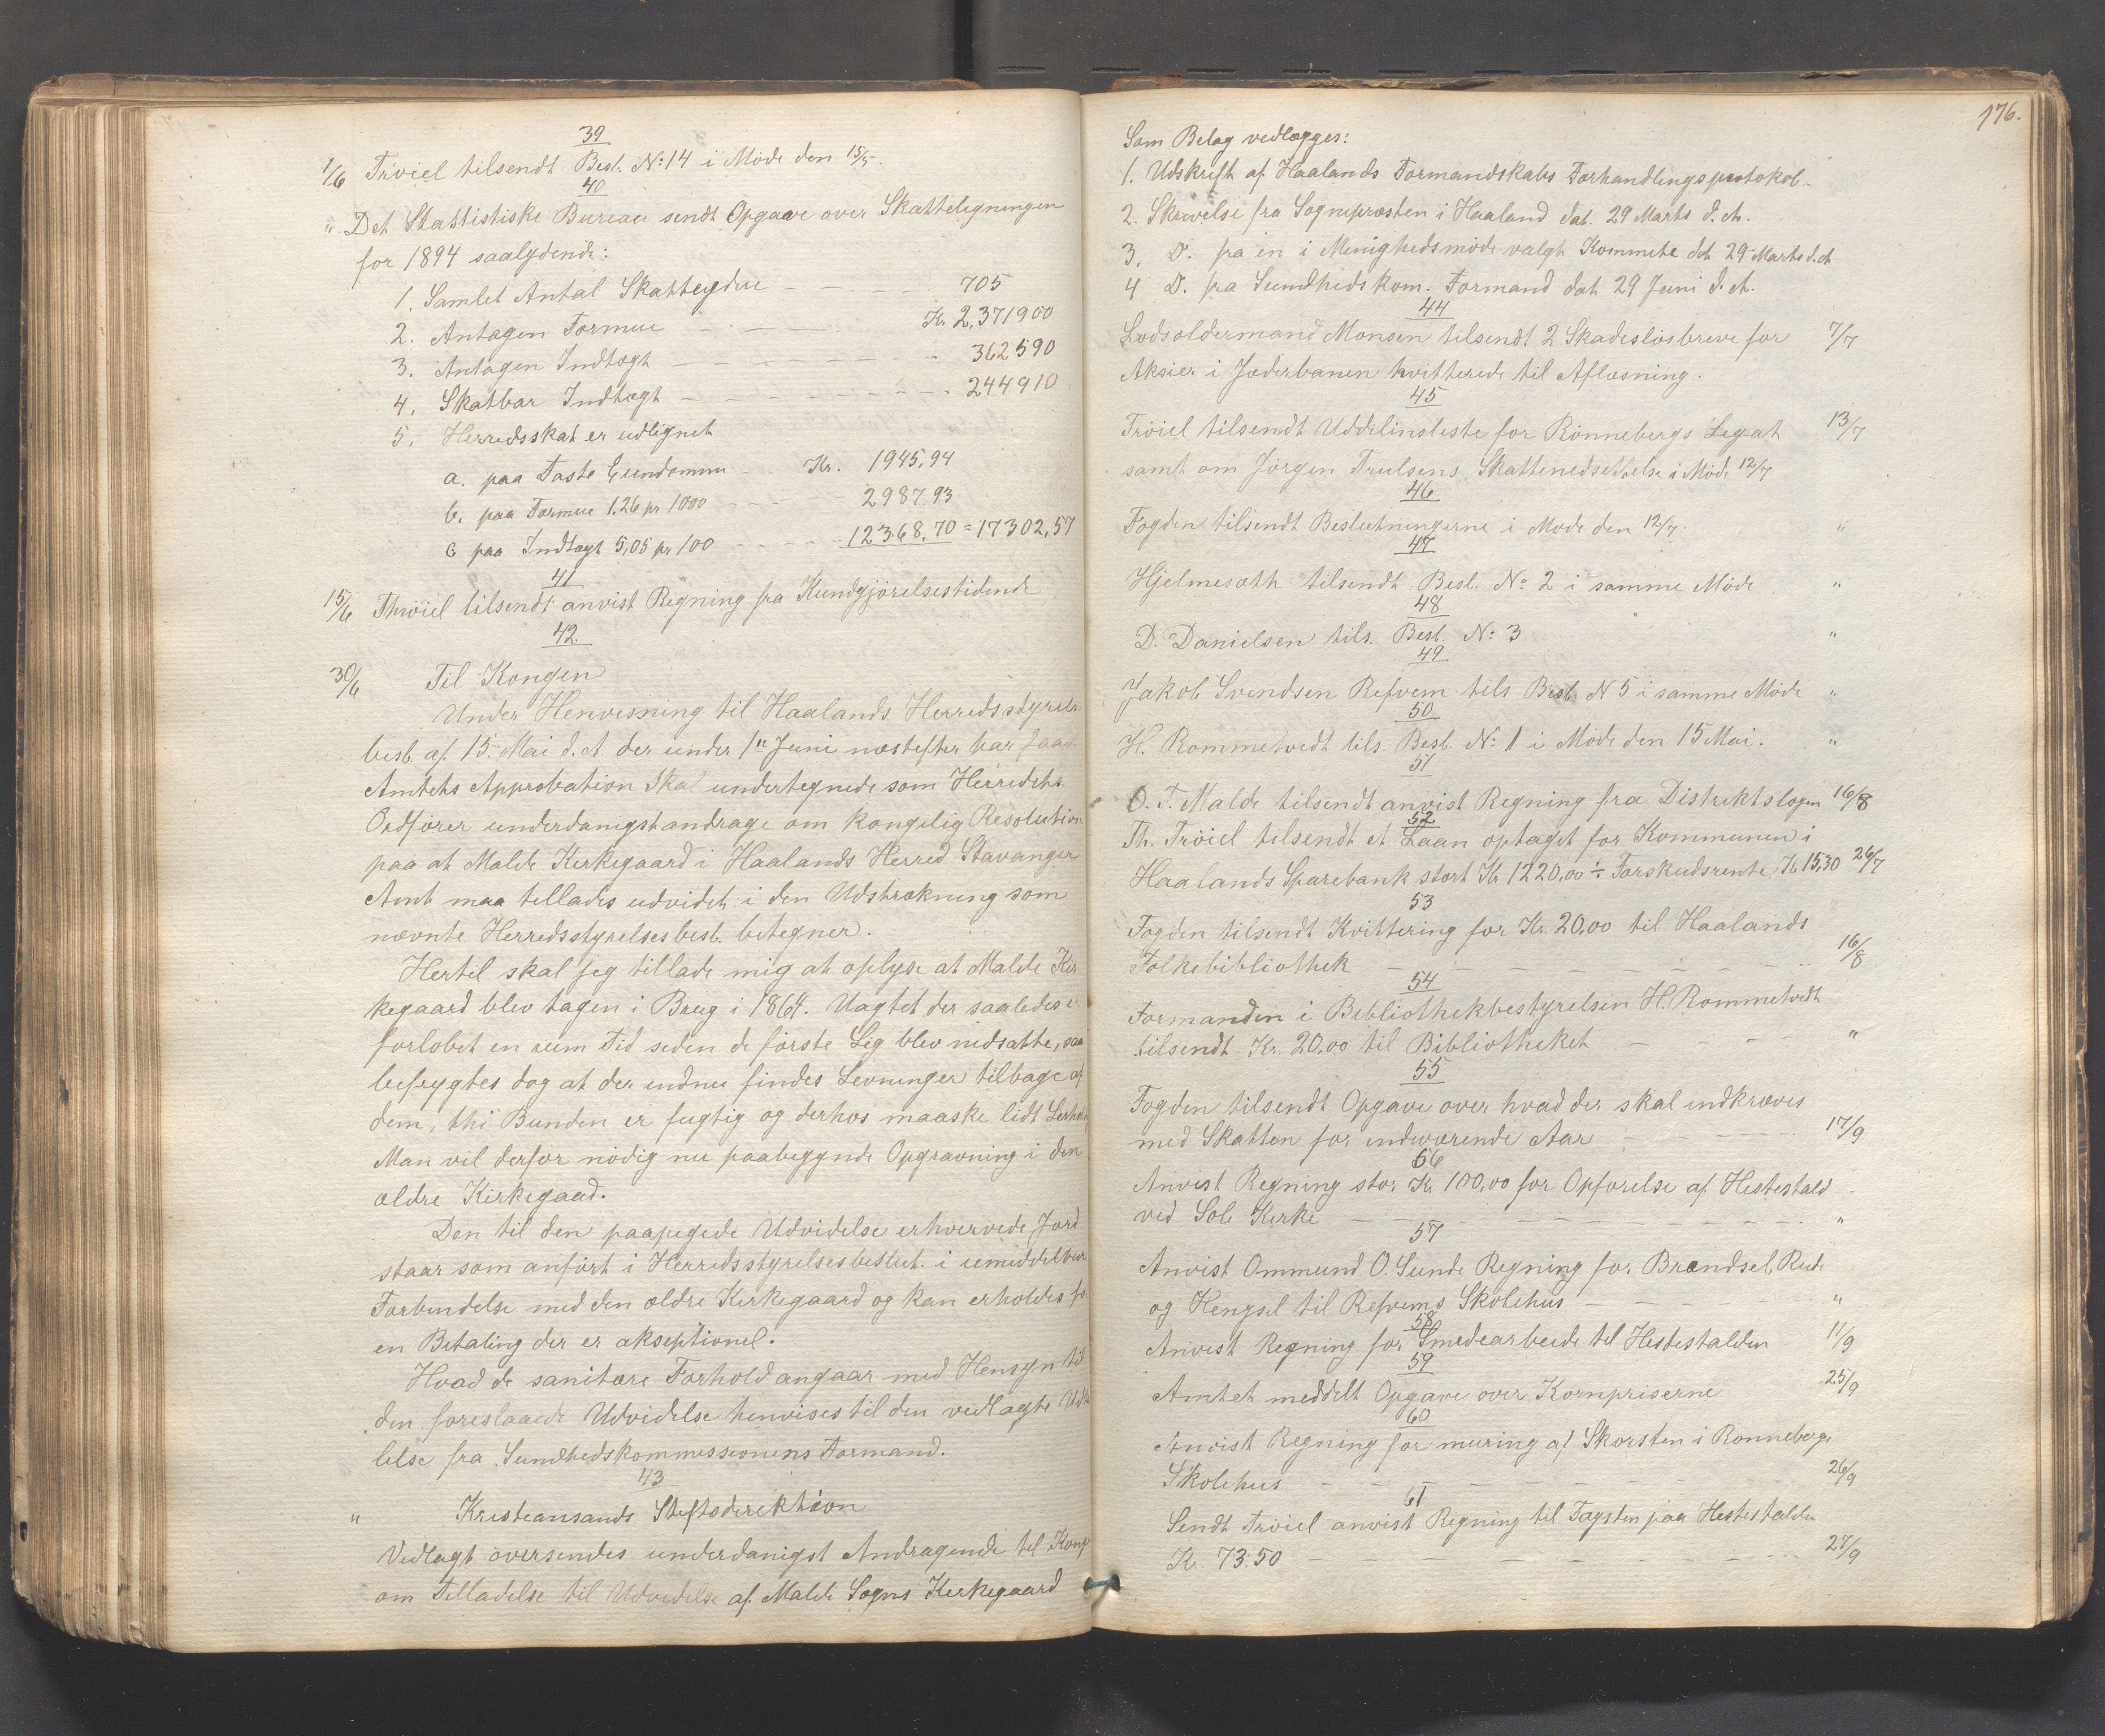 39
1/6 Tröiel tilsendt Besl. No 14 i Möde den 15/5.
40
" Det Stattistiske Bureau sendt Opgave over Skattelegningen
for 1894 saalydende:
1. Samlet Antal Skatteydere - - - - 705
2. Antagen Formue - - - - Kr. 2,371900
3. Antagen Indtægt - - - - - - - 362590
4. Skatbar Indtægt - - - - - - - 244910
5. Herredsskat er udlignet
a. paa Faste Eiendomme - Kr. 1945,94
b. paa Formue 1.26 pr 1000 - - - - 2987.93
c paa Indtægt 5,05 pr 100 - - - - 12368,70 = 17302,57
41
15/6 Thröiel tilsendt anvist Regning fra Kundgjörelsestidende
42.
30/6 Til Kongen
Under Henvisning til Haalands Herredsstyrels.
besl. af 15 Mai d. A. der under 1ste Juni næstefter har faaet
Amtets Approbation skal undertegnede som Herredets
Ordförer underdanigst andrage om kongelig Resolution
paa at Malde Kirkegaard i Haalands Herred Stavanger
Amt maa tillades udvidet i den Udstrækning som
nævnte Herredsstyrelsesbesl. betegner.
Hertil skal jeg tillade mig at oplyse at Malde Kir
kegaard blev tagen i Brug i 1864. Uagtet der saaledes er
forlöbet en rum Tid siden de förste Lig blev nedsatte, saa
befrygtes dog at der endnu findes Levninger tilbage af
dem, thi Bunden er fugtig og derhos maaske lidt
Man vil derfor nödig nu paabegynde Opgravning i den
ældre Kirkegaad.
Den til den paapegede Udvidelse erhvervede Jord
staar som anfört i Herredsstyrelsesbeslut. i umiddelbar
Forbindelse med den ældre Kirkegaard og kan erholdes for
en Betaling der er akseptionel.
Hvad de sanitære Forhold angaar med Hensyn til
den foreslaaede Udvidelse henvises til den vedlagte Udta
lelse fra Sundhedskommissionens Formand.
43
" Kristiansands Stiftsdirektion
Vedlagt oversendes underdanigst Andragende til Kong
om Tilladelse til Udvidelse af Malde Sogns Kirkegaard
176.
Som Belag vedlægges:
1. Udskrift af Haalands Formandskabs Forhandlingsprotokol.
2. Skrivelse fra Sognepræsten i Haaland dat. 29 Marts d. A.
3. D. fra en i Menighedsmöde valgt Kommete dat 29 Marts d. A
4 D. fra Sundhedskom. Formand dat 29 Juni d. A.
44
Lodsoldermand Monsen tilsendt 2 Skadeslösbreve for 7/7
Aksier i Jæderbanen kvitterede til Aflæsning.
45
Tröiel tilsendt Uddelinsliste for Rönnebergs Legat 13/7
samt om Jörgen Trulsens Skattenedsettelse i Möde 12/7
46
Fogden tilsendt Beslutningerne i Möde den 12/7. "
47
Hjelmesæth tilsendt Besl. No 2 i samme Möde "
48
D. Danielsen tils. Besl. No 3 "
49
Jakob Svendsen Refvem tils Besl. N 5 i samme Möde "
50
H. Rommetvedt tils. Besl. No 1 i Möde den 15 Mai. "
51
O. T. Malde tilsendt anvist Regning fra Distriktslægen 16/8
52
Th. Tröiel tilsendt et Laan optaget for Kommunen i
Haalands Sparebank stort Kr 1220,00 ÷ Forskudsrente Kr 15,30 26/7
53
Fogden tilsendt Kvittering for Kr. 20,00 til Haalands
Folkebibliothek - - - - - - - - 16/8
54
Formanden i Bibliothekbestyrelsen H. Rommetvedt
tilsendt Kr. 20,00 til Bibliotheket - - - - "
55
Fogden tilsendt Opgave over hvad der skal indkræves
med Skatten for indeværende Aar - - - - 17/9
56
Anvist Regning stor Kr 100,00 for Opförelse af Hestestald
ved Sole Kirke - - - - - - - - - "
57
Anvist Ommund O. Sunde Regning for Brændsel, Rude
og Hengsel til Refvems Skolehus - - - - "
58
Anvist Regning for Smedearbeide til Hestestalden 11/9
59
Amtet meddelt Opgave over Kornpriserne 25/9
60
Anvist Regning for muring af Skorsten i Ronnebergs
Skolehus - - - - - - - 26/9
61
Sendt Tröiel anvist Regning til Tagsten paa Hestestalden
Kr. 73.50 - - - - - - - 27/9